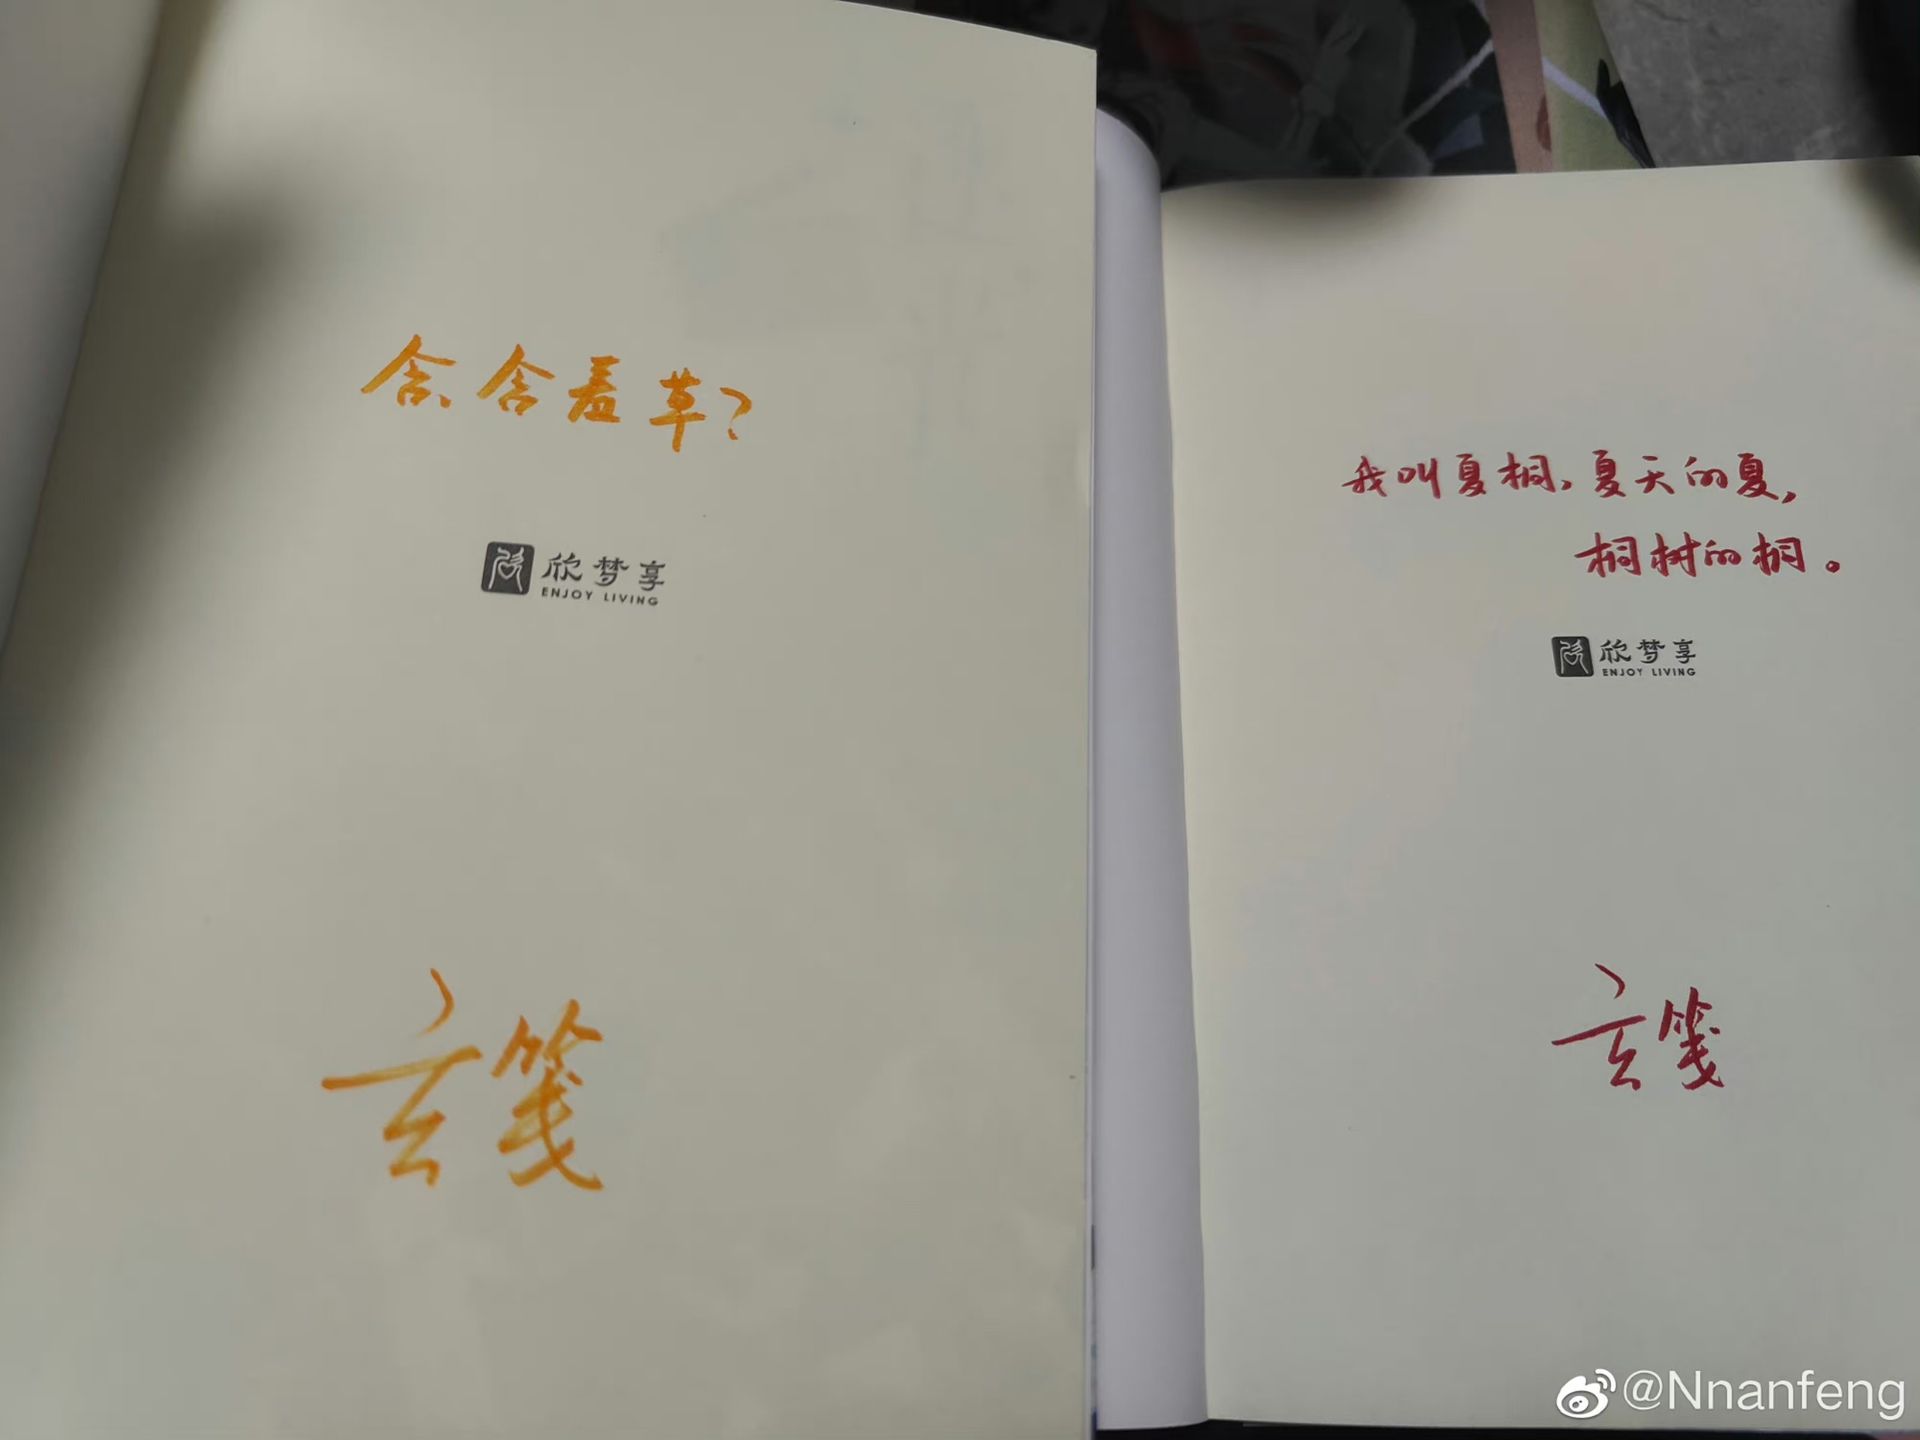 含、含羞草？
欣梦享
ENJOY LIVING
玄笺
我叫夏桐，夏天的夏，
桐树的桐。
欣梦享
ENJOY LIVING
玄笺
@Nnanfeng